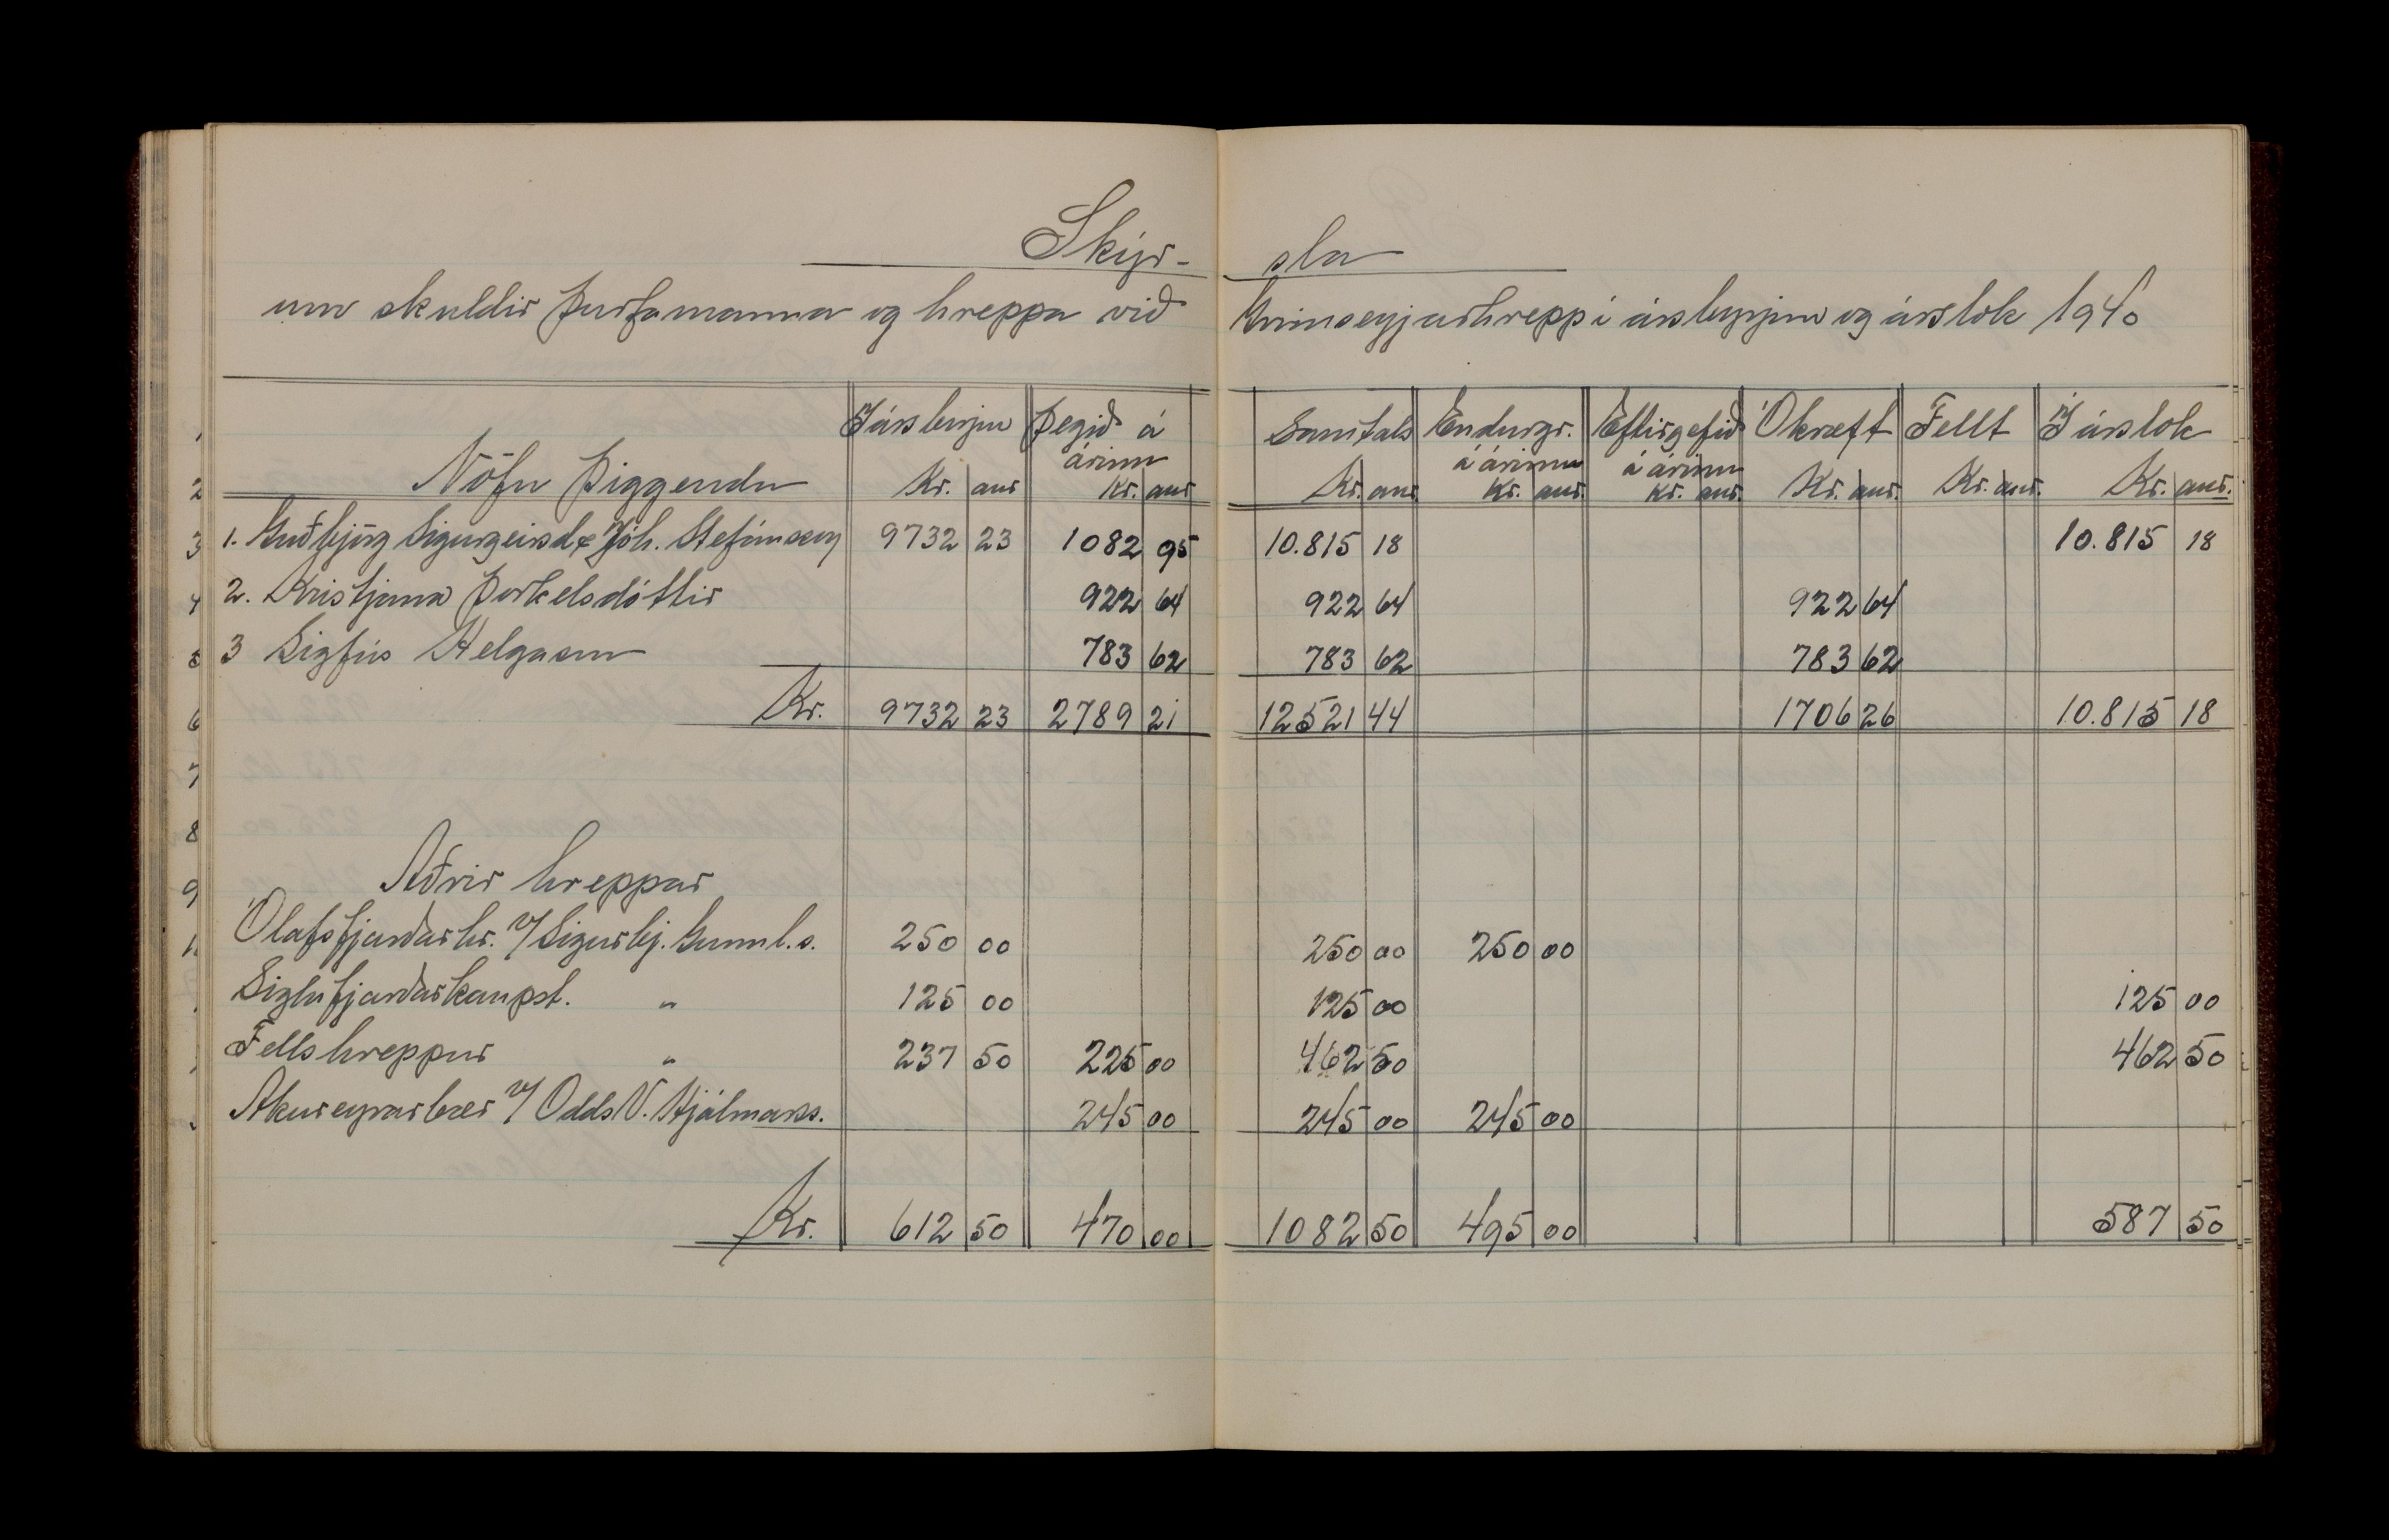 Skýr- sla
um skuldir þurfamanna og hreppa við Grímseyjarhrepp í ársbyrjun og árslok 1940
Í ársbyrjun Þegið á Samtals Endurgr. Eftirgefið Ókræft Fellt Í árslok
árinu á árinu á árinu
Nöfn þiggenda Kr. aur Kr. aur Kr. aur Kr. aur. Kr. aur. Kr. aur. Kr. aur. Kr. aur.
1. Guðbjörg Sigurgeirsd. & Jóh. Stefánssong 9732 23 1082 95 10.815 18 10.815 18
2. Kristjana Þorkelsdóttir 922 64 922 64 922 64
3 Sigfús Helgason 783 62 783 62 783 62
Kr. 9732 23 2789 21 12521 44 1706 26 10.815 18
Aðrir hreppar
Ólafsfjarðarhr. v/ Sigurbj. Gunnl.s. 250 00 250 00 250 00
Siglufjarðarkaupst. " 125 00 125 00 125 00
Fellshreppur " 237 50 225 00 462 50 462 50
Akureyrarbær v/ Odds V. Hjálmarss. 245 00 245 00 245 00
Kr. 612 50 470 00 1082 50 495 00 587 50
1
2
3
4
5
6
7
8
9